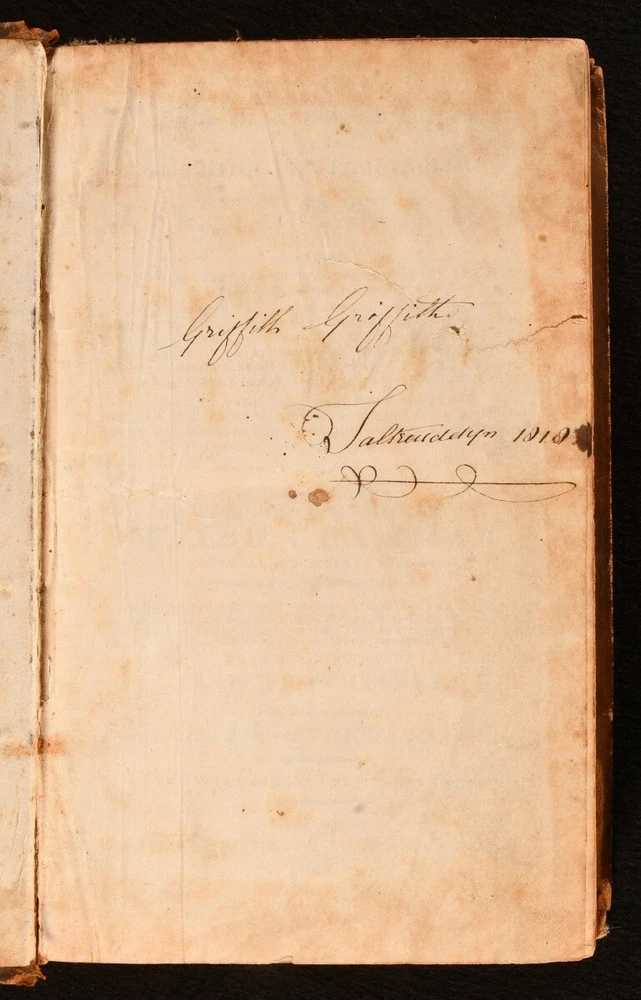 Griffith Griffith
Taltreuddyn 1818